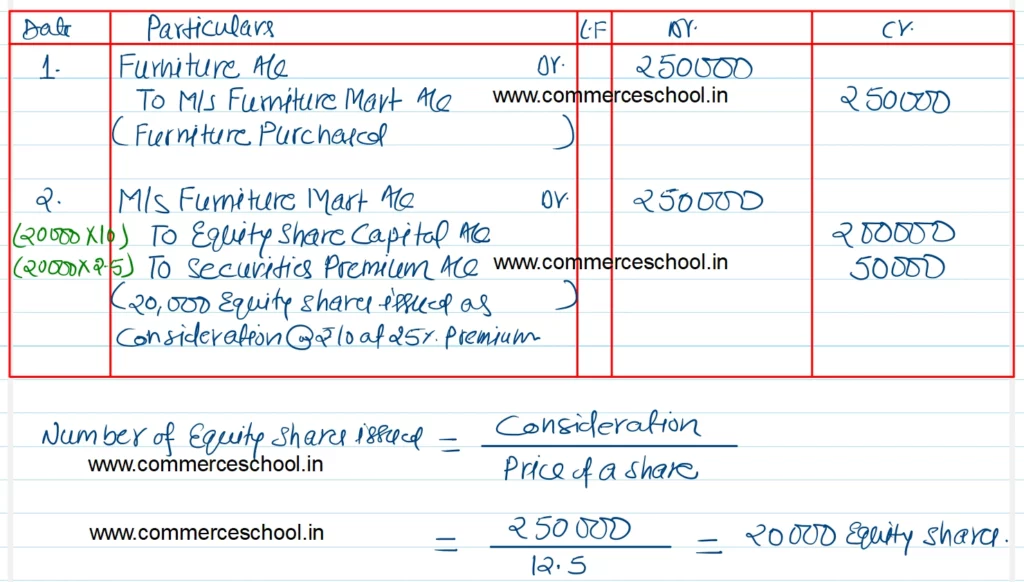 Date Particulars L.F Dr. Cr.
1. Furniture A/c Dr. 250000
To M/s Furniture Mart A/c www.commerceschool.in 250000
(Furniture Purchased)
2. M/s Furniture Mart A/c Dr. 250000
(20000 X 10) To Equity Share Capital A/c 200000
(20000 X 2.5) To Securities Premium A/c www.commerceschool.in 50000
(20,000 Equity shares issued as)
Consideration @ ₹10 at 25%. Premium
Number of Equity Share issued = Consideration
www.commerceschool.in Price of a share
www.commerceschool.in = 250000 = 20000 Equity shares.
12.5